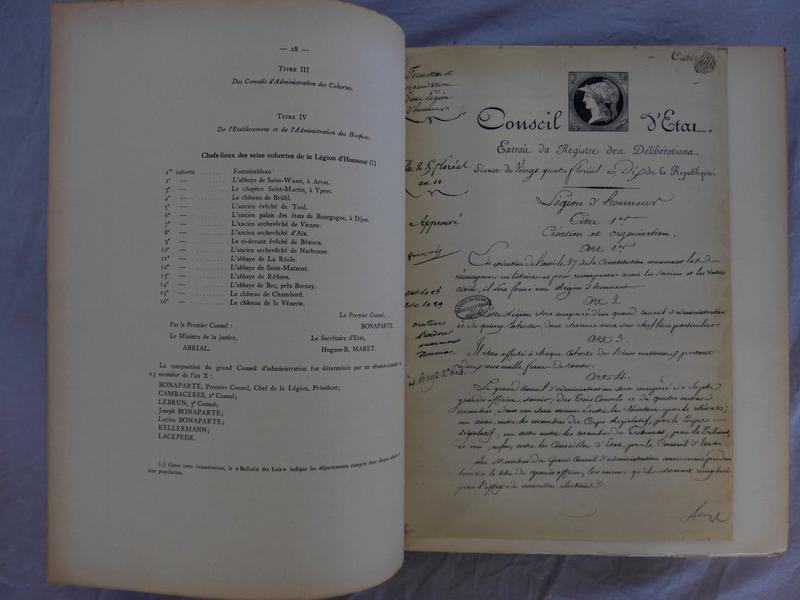 — 28 —
TITRE III
Des Conseils d'Administration des Cohortes.
TITRE IV
De l'Etablissement et de l'Administration des Hospices.
Chefs-lieux des seize cohortes de la Légion d'Honneur (1)
1re cohorte ........ Fontainebleau
2e — ........ L'abbaye de Saint-Waast, à Arras.
3e — ........ Le chapitre Saint-Martin, à Ypres.
4e — ........ Le château de Brühl.
5e — ........ L'ancien évêché de Toul.
6e — ........ L'ancien palais des états de Bourgogne, à Dijon.
7e — ........ L'ancien archevêché de Vienne.
8e — ........ L'ancien archevêché d'Aix.
9e — ........ Le ci-devant évêché de Béziers.
10e — ........ L'ancien archevêché de Narbonne.
11e — ........ L'abbaye de La Réole.
12e — ........ L'abbaye de Saint-Maixent.
13e — ........ L'abbaye de
14e — ........ L'abbaye de Bec, près Bernay.
15e — ........ Le château de Chambord.
16e — ........ Le château de la Vénerie.
Le Premier Consul,
Par le Premier Consul : BONAPARTE.
Le Ministre de la justice, Le Secrétaire d'Etat,
ABRIAL. Hugues-B. MARET.
La composition du grand Conseil d'administration fut déterminée par un
13 messidor de l'an X :
BONAPARTE, Premier Consul, Chef de la Légion, Président;
CAMBACERES, 2e Consul;
LEBRUN, 3e Consul;
Joseph BONAPARTE;
Lucien BONAPARTE;
KELLERMANN;
LACEPEDE.
(1) Outre cette énumération, le « Bulletin des Lois » indique les départements compris dans chaque cohorte et
leur population.
Formation et
organisation
d'une Légion
d'honneur
Conseil d'Etat.
Extrait du Registre des Délibérations.
Séance du Vingt quatre floréal an Dix de la République
an 10
Légion d'honneur
Titre 1er
Approuvé
Création et organisation.
Art 1er
En exécution de l'article 87 de la Constitution concernant les
récompenses militaires et pour récompenser aussi les services et les vertus
civiles, il sera formé une Légion d'honneur
Art 2.
Cette Légion sera composée d'un grand conseil d'administration
et de quinze Cohortes, dont chacune aura son chef lieu particulier
Art 3.
Il sera affecté à chaque Cohorte des Biens nationaux portant
deux cent mille francs de rente.
Art 4.
Le grand Conseil d'administration sera composé de Sept
grands officiers, savoir; des Trois Consuls et de quatre autres
membres, dont un sera nommé entre les Sénateurs par le Sénat;
un autre, entre les membres du Corps Législatif, par le Corps
Législatif; un autre entre les membres du Tribunat, par le Tribunat,
et un enfin, entre les Conseillers d'Etat, par le Conseil d'Etat.
Les Membres du Grand Conseil d'administration conserveront pendant
leur vie le titre de grands officiers, lors même qu'ils seraient remplacés
par l'effet de nouvelles élections.